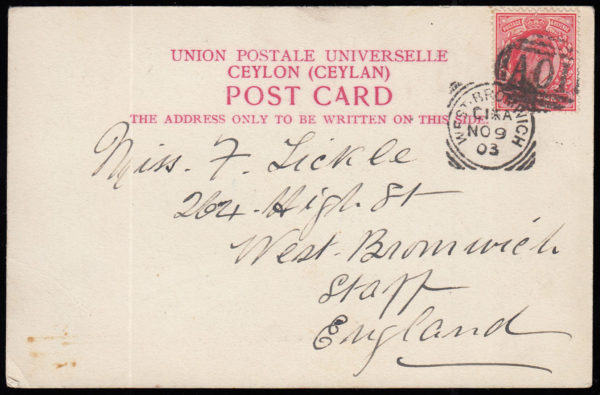 UNION POSTALE UNIVERSELLE
CEYLON (CEYLAN)
POST CARD
THE ADDRESS ONLY TO BE WRITTEN ON THIS SIDE.
A01
WEST-BROMWICH
NO 9
03
Miss. F. Sickle
264. High St
West. Bromwich
Staff
England